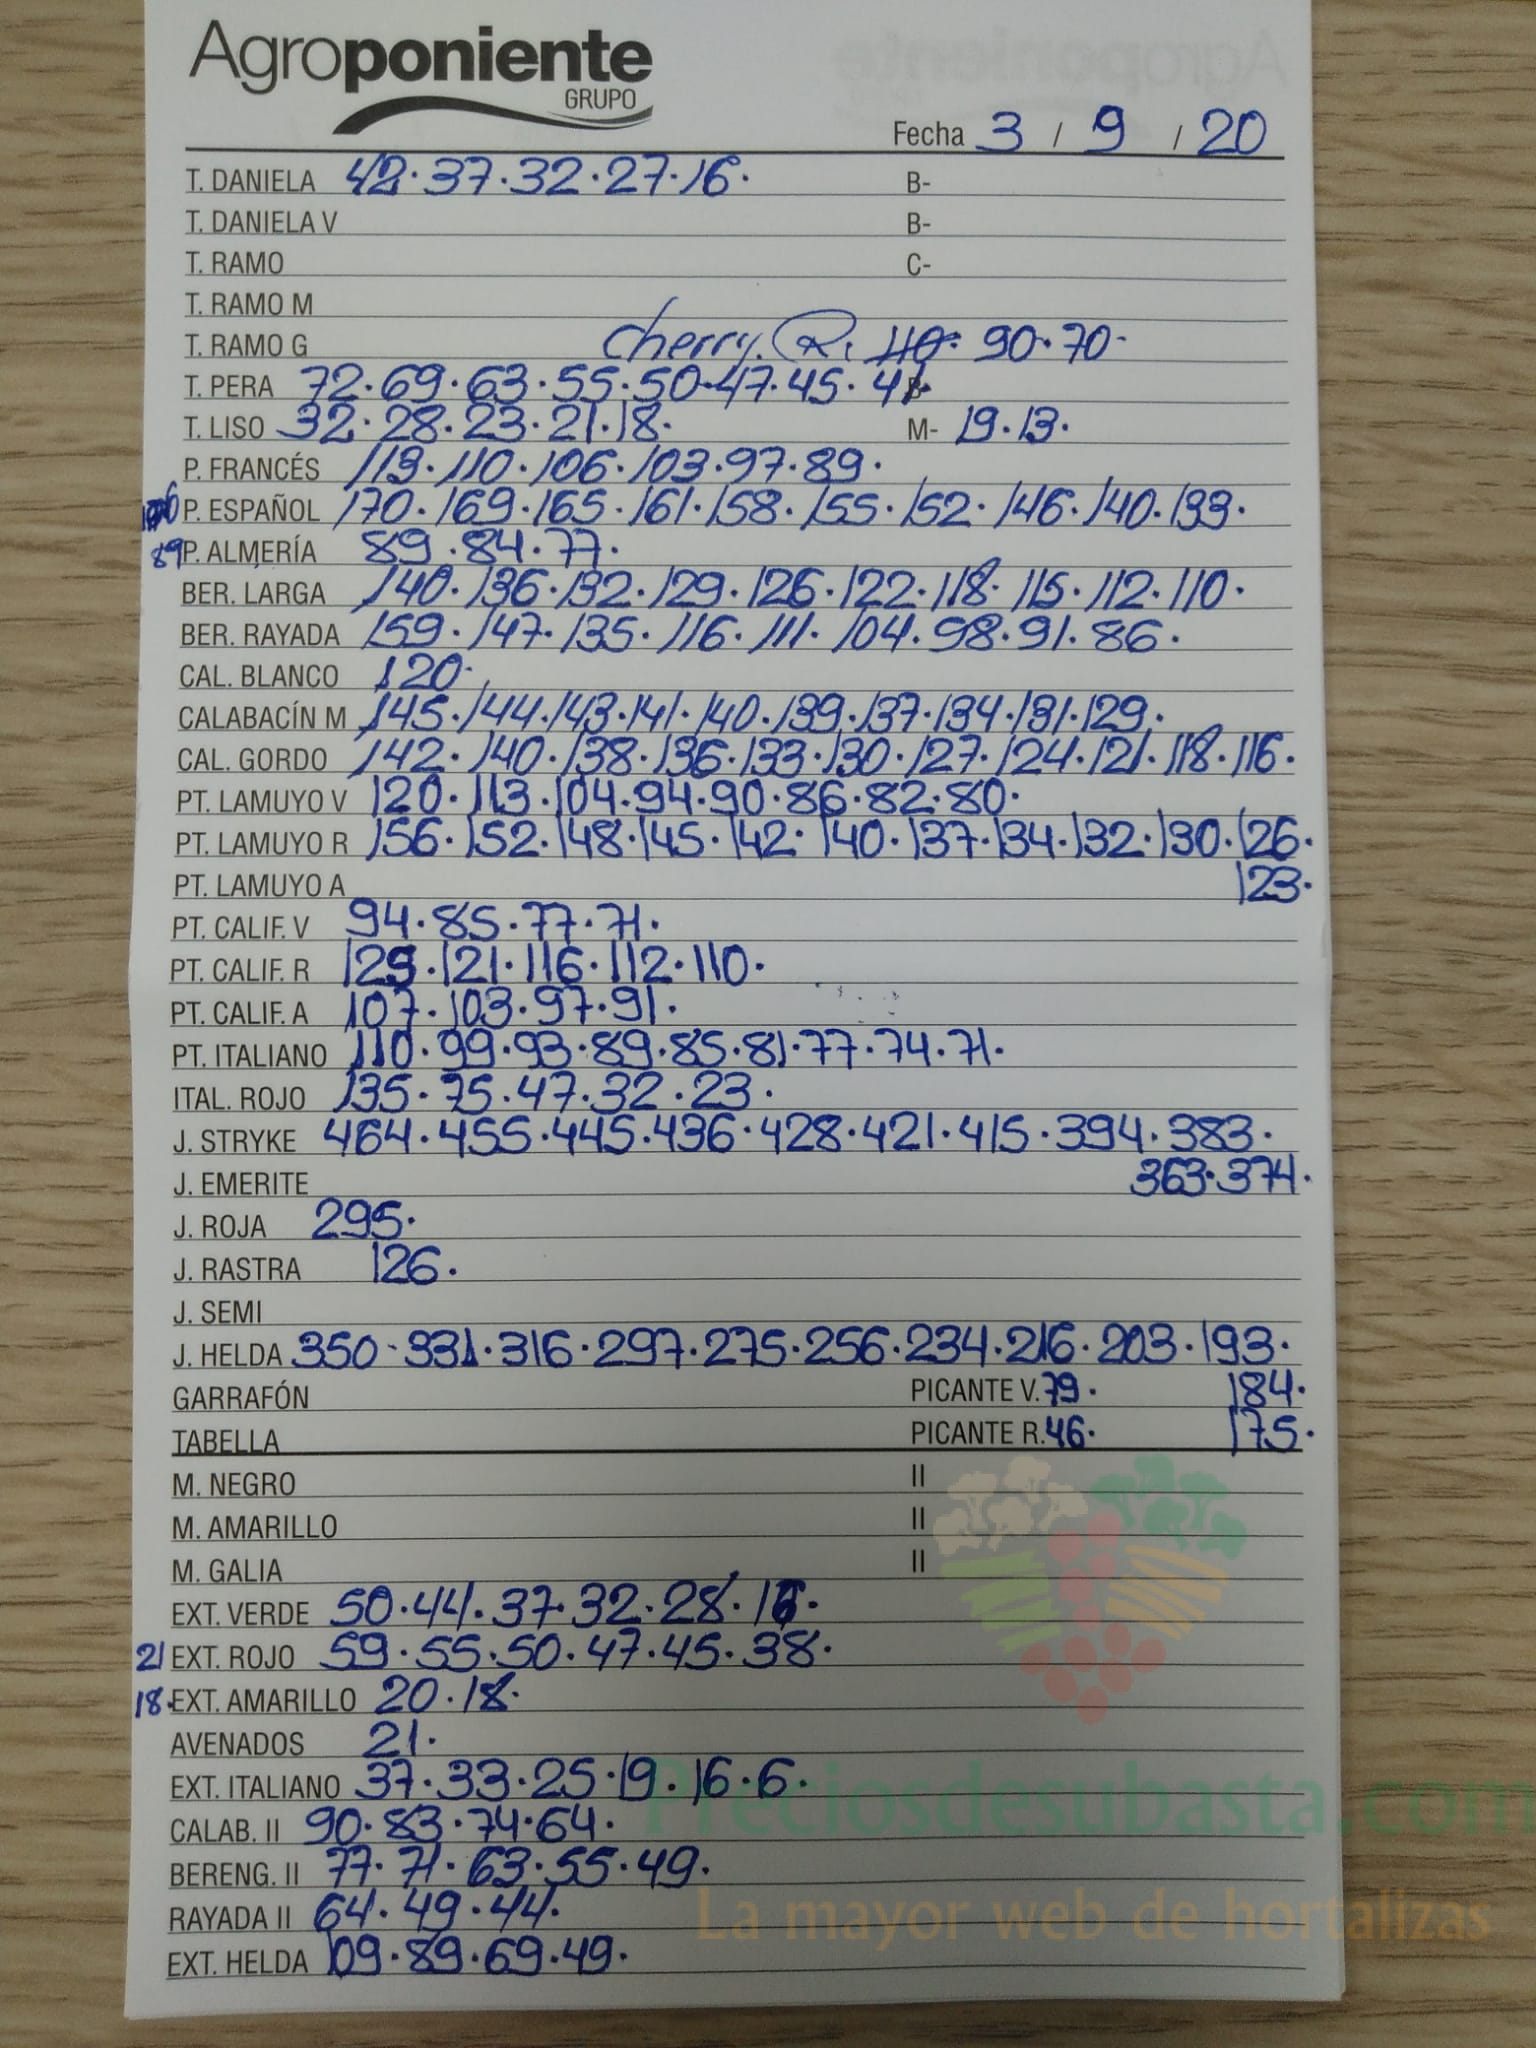 Agroponiente
GRUPO
Fecha 3 / 9 / 20
T. DANIELA 42·37·32·27·16· B-
T. DANIELA V B-
T. RAMO C-
T. RAMO M
T. RAMO G Cherry. R. 110· 90·70-
T. PERA 72·69·63·55·50·47·45·41·
T. LISO 32·28·23·21·18· M- 19·13·
P. FRANCÉS 113·110·106·103·97·89·
P. ESPAÑOL 170·169·165·161·158·155·152·146·140·133·
89 P. ALMERÍA 89·84·77·
BER. LARGA 140·136·132·129·126·122·118·115·112·110·
BER. RAYADA 159·147·135·116·111·104·98·91·86·
CAL. BLANCO 120·
CALABACÍN M 145·144·143·141·140·139·137·134·131·129·
CAL. GORDO 142·140·138·136·133·130·127·124·121·118·116·
PT. LAMUYO V 120·113·104·94·90·86·82·80·
PT. LAMUYO R 156·152·148·145·142·140·137·134·132·130·126·
PT. LAMUYO A 123·
PT. CALIF. V 94·85·77·71·
PT. CALIF. R ·121·116·112·110·
PT. CALIF. A 107·103·97·91·
PT. ITALIANO 110·99·93·89·85·81·77·74·71·
ITAL. ROJO 135·75·47·32·23·
J. STRYKE 464·455·445·436·428·421·415·394·383·
J. EMERITE 363·374·
J. ROJA 295·
J. RASTRA 126·
J. SEMI
J. HELDA 350-331·316·297·275·256·234·216·203·193·
GARRAFÓN PICANTE V. 79· 184·
TABELLA PICANTE R. 46· 175·
M. NEGRO II
M. AMARILLO II
M. GALIA II
EXT. VERDE 50·44·37·32·28·
21 EXT. ROJO 59·55·50·47·45·38·
18· EXT. AMARILLO 20·18·
AVENADOS 21·
EXT. ITALIANO 37·33·25·19·16·6·
Preciosdesubasta.com
CALAB. II 90·83·74·64·
BERENG. II 77·71·63·55·49·
RAYADA II 64·49·44·
La mayor web de hortalizas
EXT. HELDA 109·89·69·49·